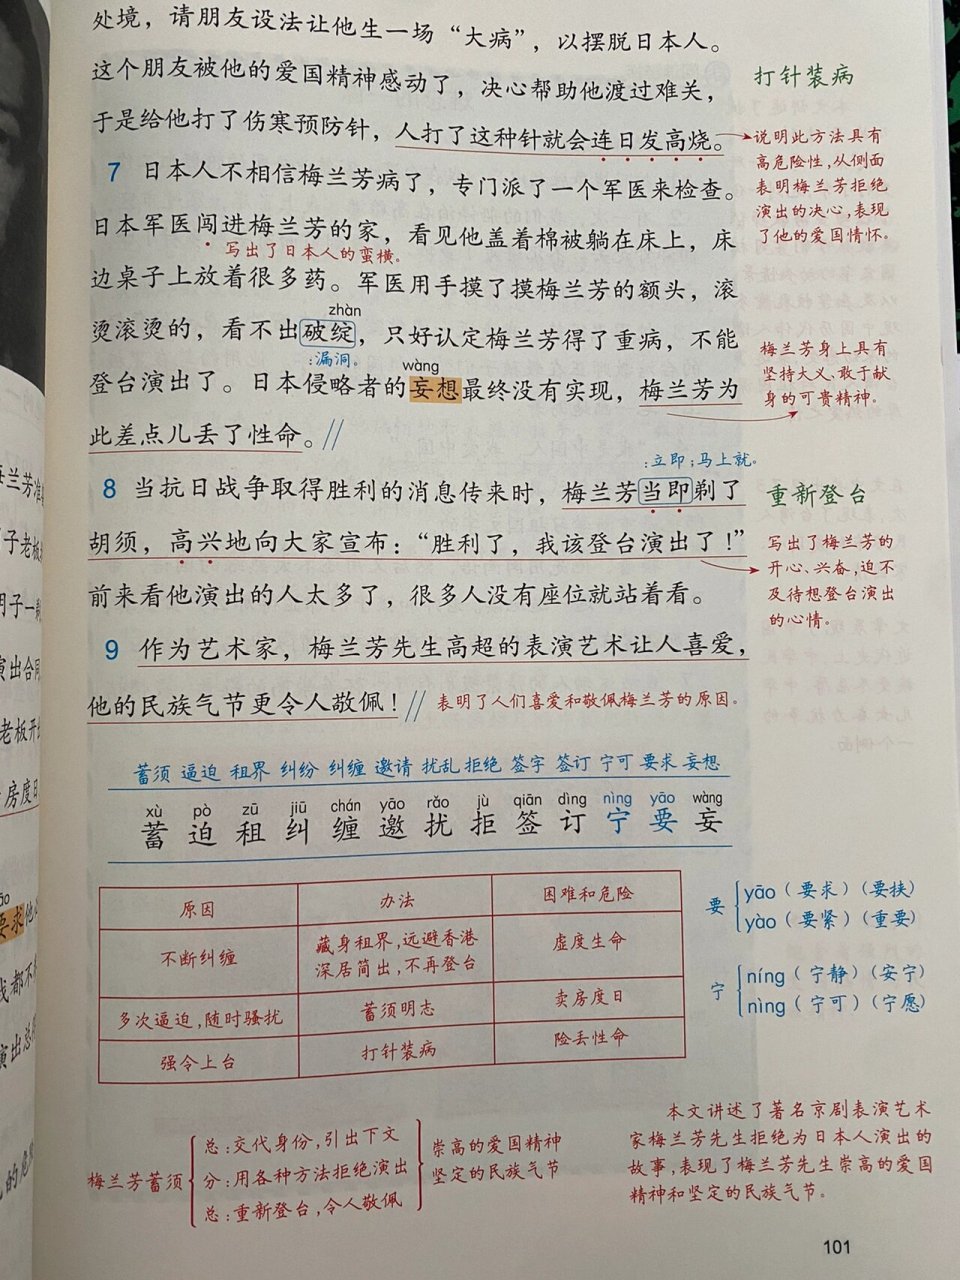 处境，请朋友设法让他生一场“大病”，以摆脱日本人。
这个朋友被他的爱国精神感动了，决心帮助他渡过难关，
于是给他打了伤寒预防针，人打了这种针就会连日发高烧。
打针装病
说明此方法具有
高危险性，从侧面
表明梅兰芳拒绝
演出的决心，表现
了他的爱国情怀。
7 日本人不相信梅兰芳病了，专门派了一个军医来检查。
日本军医闯进梅兰芳的家，看见他盖着棉被躺在床上，床
写出了日本人的蛮横。
边桌子上放着很多药。军医用手摸了摸梅兰芳的额头，滚
zhàn
烫滚烫的，看不出破绽，只好认定梅兰芳得了重病，不能
：漏洞。
wàng
登台演出了。日本侵略者的妄想最终没有实现，梅兰芳为
此差点儿丢了性命。
梅兰芳身上具有
坚持大义、敢于献
身的可贵精神。
：立即；马上就。
8 当抗日战争取得胜利的消息传来时，梅兰芳当即剃了
胡须，高兴地向大家宣布：“胜利了，我该登台演出了！”
前来看他演出的人太多了，很多人没有座位就站着看。
重新登台
写出了梅兰芳的
开心、兴奋，迫不
及待想登台演出
的心情。
9 作为艺术家，梅兰芳先生高超的表演艺术让人喜爱，
他的民族气节更令人敬佩！
表明了人们喜爱和敬佩梅兰芳的原因。
蓄须 逼迫 租界 纠纷 纠缠 邀请 扰乱 拒绝 签字 签订 宁可 要求 妄想
xù pò zū jiū chán yāo rǎo jù qiān dìng nìng yāo wàng
蓄 迫 租 纠 缠 邀 扰 拒 签 订 宁 要 妄
原因 办法 困难和危险
不断纠缠 藏身租界，远避香港 虚度生命
深居简出，不再登台
多次逼迫，随时骚扰 蓄须明志 卖房度日
强令上台 打针装病 险丢性命
要
yāo（要求）（要挟）
yào（要紧）（重要）
宁
níng（宁静）（安宁）
nìng（宁可）（宁愿）
梅兰芳蓄须
总：交代身份，引出下文
分：用各种方法拒绝演出
总：重新登台，令人敬佩
崇高的爱国精神
坚定的民族气节
本文讲述了著名京剧表演艺术
家梅兰芳先生拒绝为日本人演出的
故事，表现了梅兰芳先生崇高的爱国
精神和坚定的民族气节。
101